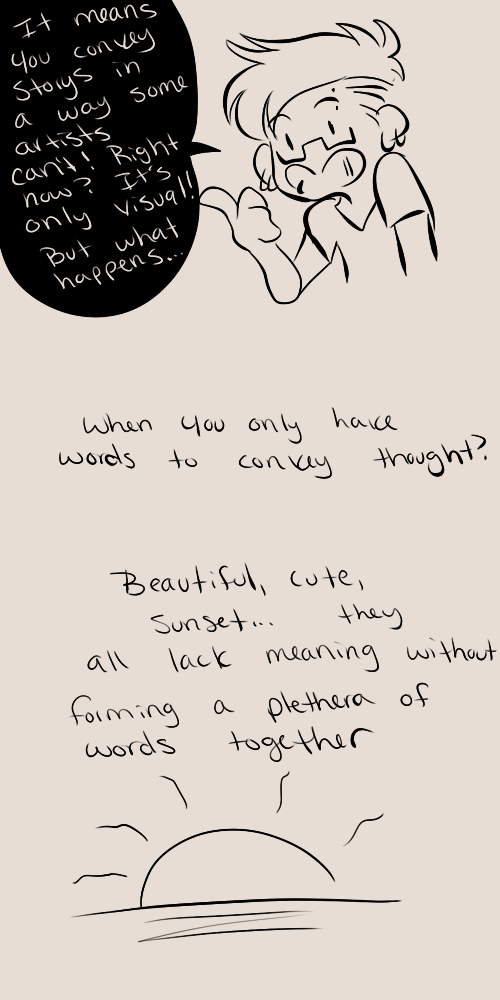 It means
you convey
Storys in
a way some
artists
can't! Right
now? It's
only visual!
But what
happens...
When you only have
words to convey thought?
Beautiful, cute,
sunset... they
all lack meaning without
forming a plethera of
words together